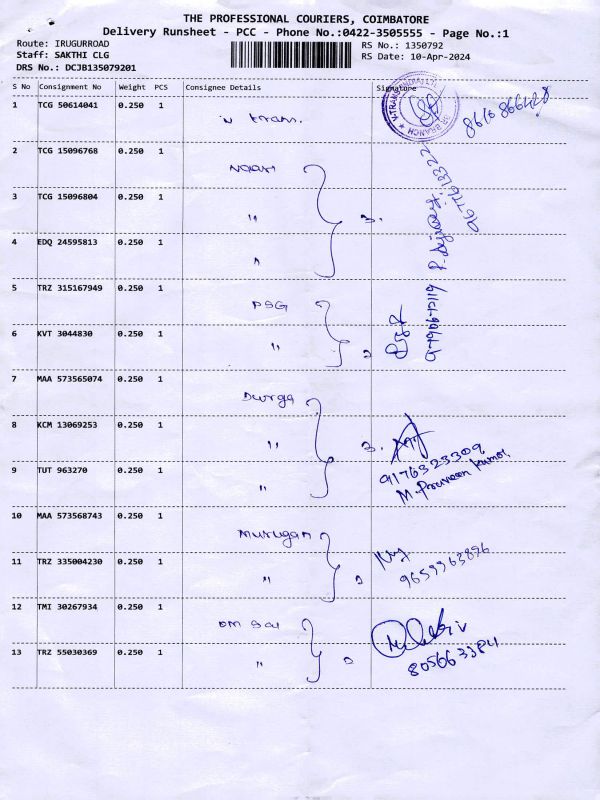 THE PROFESSIONAL COURIERS, COIMBATORE
Delivery Runsheet - PCC - Phone No.:0422-3505555 - Page No.:1
Route: IRUGURROAD RS No.: 1350792
Staff: SAKTHI CLG RS Date: 10-Apr-2024
DRS No.: DCJB135079201
S No Consignment No Weight PCS Consignee Details Signature
1 TCG 50614041 0.250 1
2 TCG 15096768 0.250 1
3 TCG 15096804 0.250 1 " 3.
4 EDQ 24595813 0.250 1 "
5 TRZ 315167949 0.250 1 PSG
6 KVT 3044830 0.250 1 " 2
7 MAA 573565074 0.250 1 Durga
8 KCM 13069253 0.250 1 " 3.
9 TUT 963270 0.250 1 " 9176323309
M. Praveen Kumar.
10 MAA 573568743 0.250 1 Murugan
11 TRZ 335004230 0.250 1 " 2 9659963896
12 TMI 30267934 0.250 1 OM Sai
13 TRZ 55030369 0.250 1 " 2